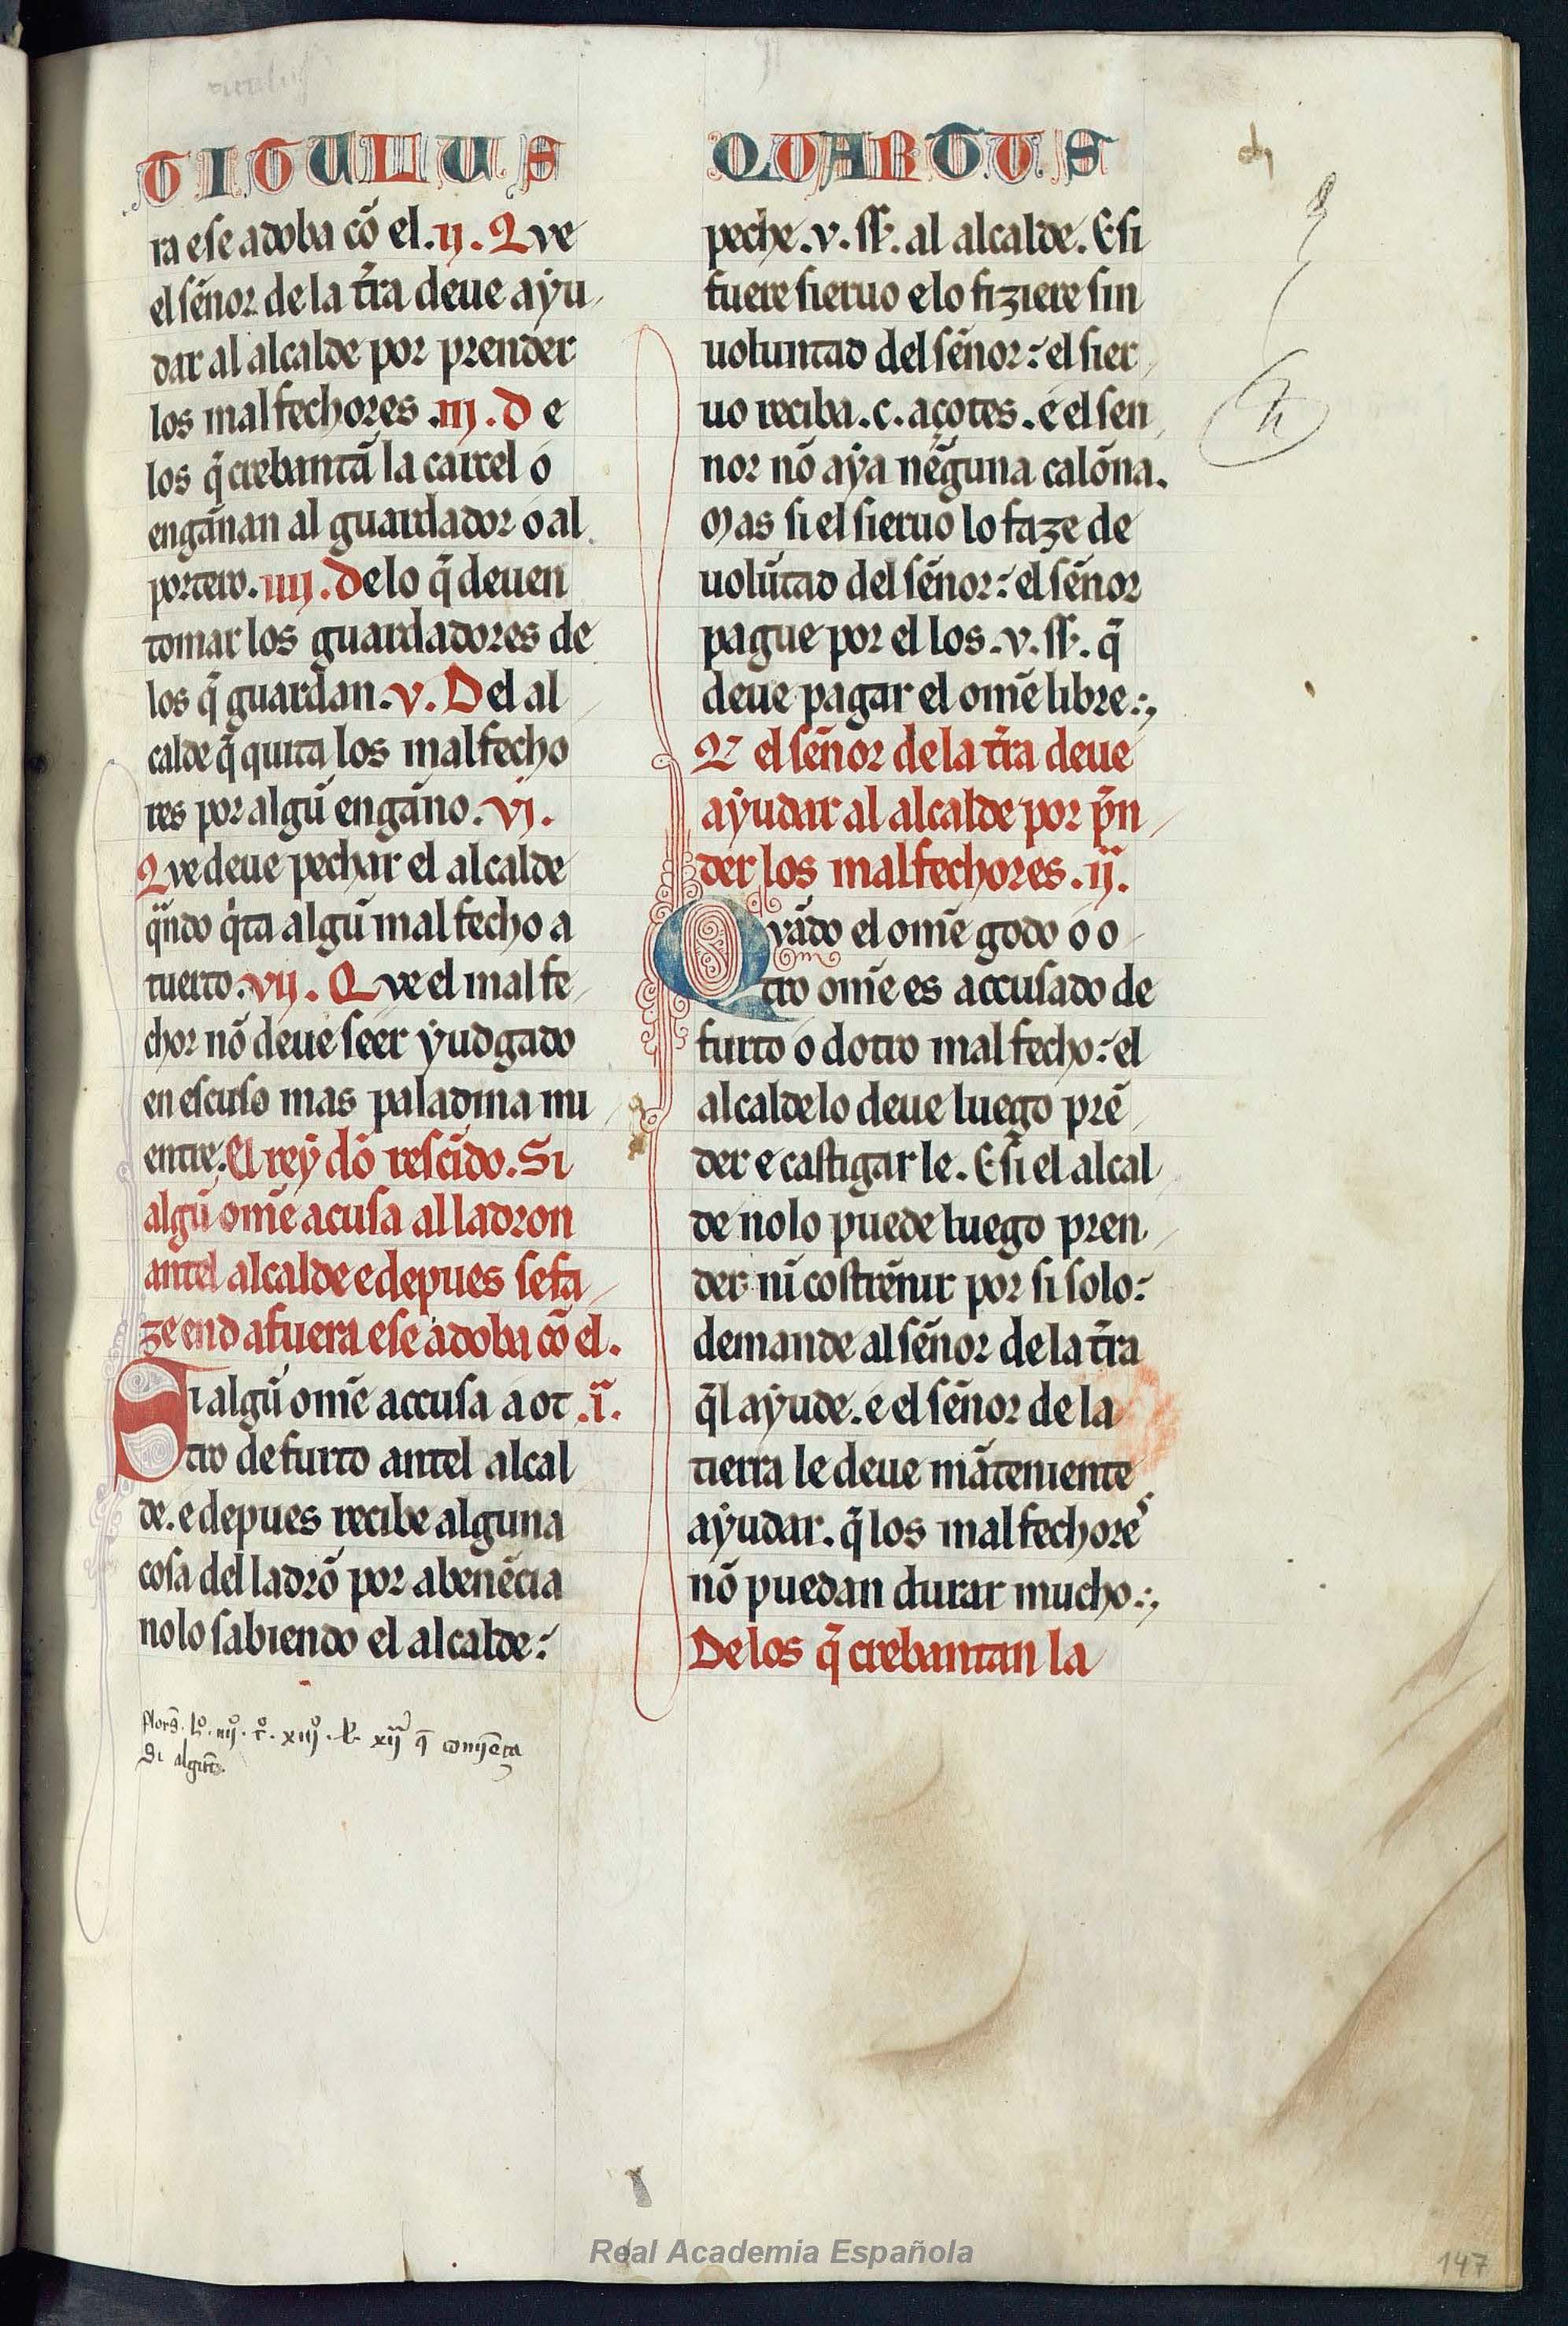 TITULUS
ra e se adoba cõ el. ij. Que
el sẽnor de la tr̃a deue aẏu
dar al alcalde por prender
los malfechores .iij. De
los q̃ crebantã la carcel o
engãnan al guardador o al
portero. iiij. De lo q̃ deuen
tomar los guardadores de
los q̃ guardan. v. Del al
calde q̃ quita los malfecho
res por algũ engãno. vi.
Que deue pechar el alcalde
qñdo q'ta algũ malfecho a
tuerto. vij. Que el malfe
chor nõ deue seer ẏudgado
en escuso mas paladina mi
entre. El reẏ dõ rescĩdo. Si
algũ om̃e acusa al ladron
antel alcalde e depues se fa
ze end afuera e se adoba cõ el.
Si algũ om̃e accusa a ot .i.
tro de furto antel alcal
de. e depues recibe alguna
cosa del ladrõ por abenẽcia
no lo sabiendo el alcalde:
QUARTUS
peche .v. ss̃. al alcalde. E si
fuere sieruo e lo fiziere sin
uoluntad del sẽnor: el sier
uo reciba .c. açotes. e el sen
nor nõ aẏa neguna calõna.
Mas si el sieruo lo faze de
uolũtad del sẽnor: el sẽnor
pague por el los .v. ss̃. q̃
deue pagar el om̃e libre:,
Q̃ el sẽnor de la tr̃a deue
aẏudar al alcalde por p̃n
der los malfechores. ij.
Quãdo el om̃e godo o o
tro om̃e es accusado de
furto o dotro malfecho: el
alcalde lo deue luego prẽ
der e castigarle. E si el alcal
de no lo puede luego pren
der ni costrẽnir por si solo:
demande al sẽnor de la tr̃a
q̃l aẏude. e el sẽnor de la
tierra le deue mãteniente
aẏudar. q̃ los malfechores
nõ puedan durar mucho:,
De los q̃ crebantan la
h
lº. iiijº. tº. xiiijº. l. xij q̃ comiẽça
Si algũ
Real Academia Española
147